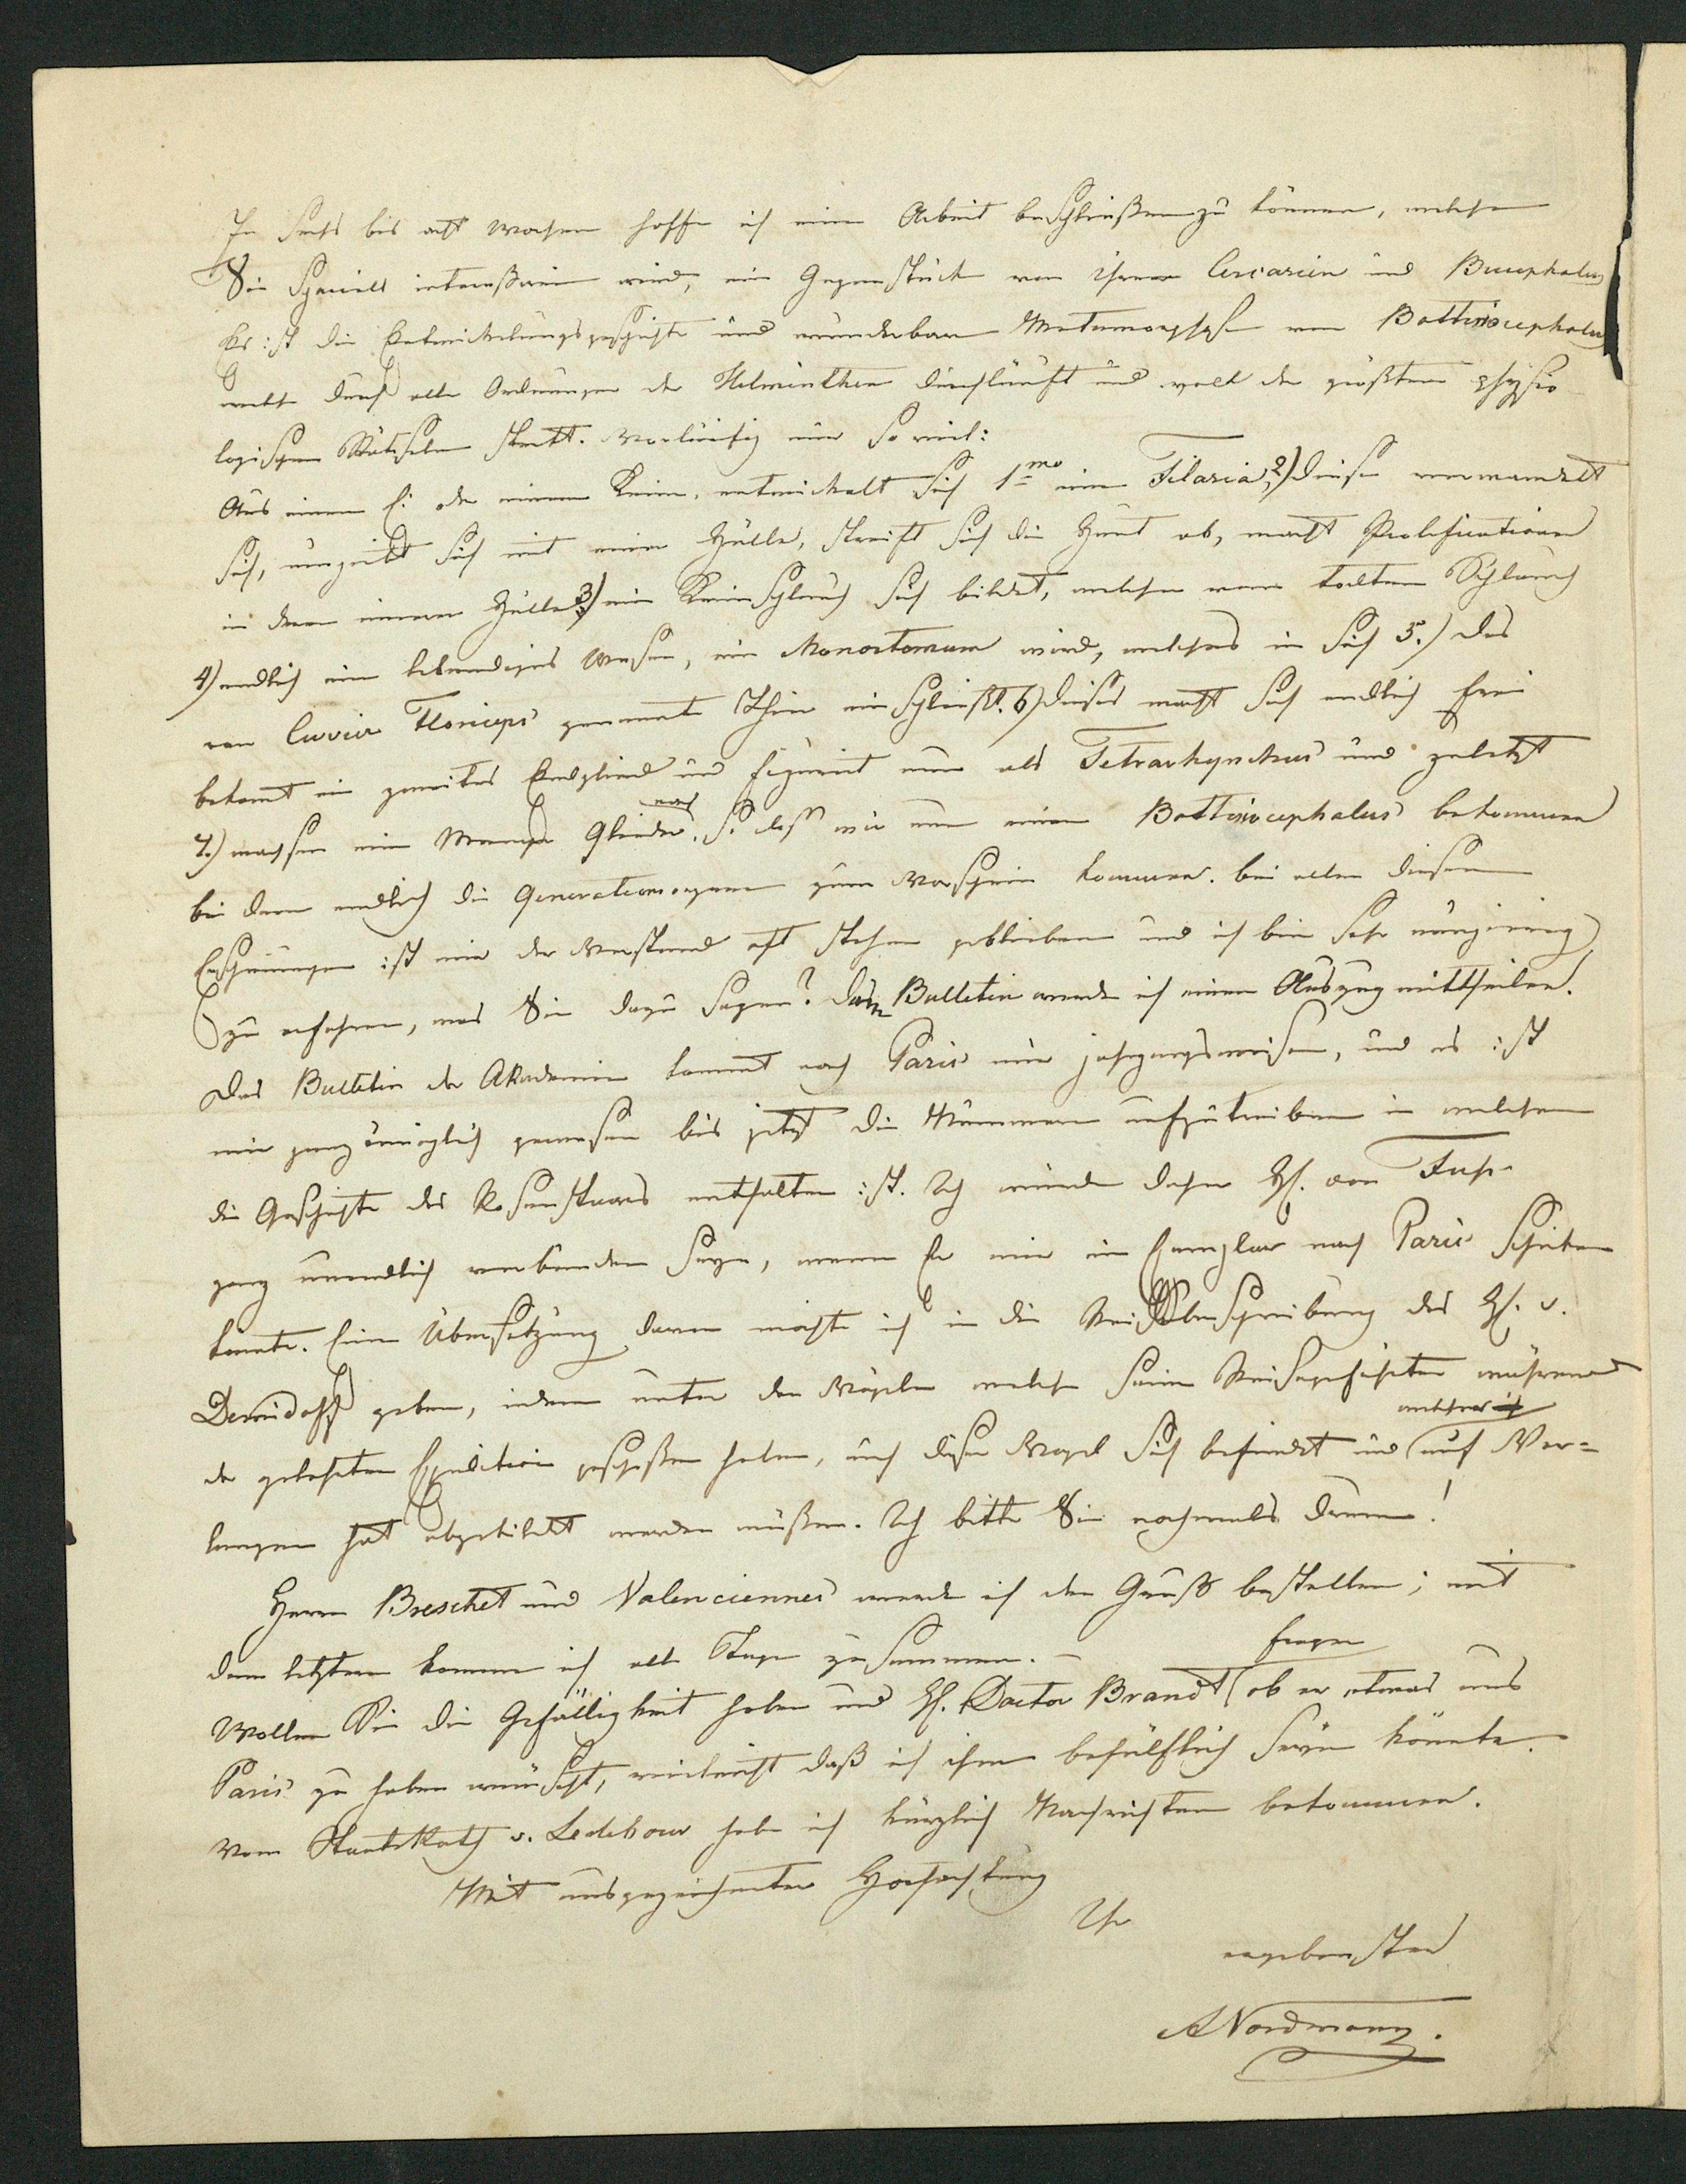 In sechs bis acht Wochen hoffe ich eine Arbeit beschließen zu können, welche
Sie speciell interessiren wird, ein Gegenstück von Ihren Cercarien und Bucephalus
Es ist die Entwickelungsgeschichte und wunderbare Metamorphose von Bottriocephalus
welche durch alle Ordnungen der Helminthen durchläuft und voll der größten physio
logischen Räthseln steckt. Vorläufig nur so viel:
Aus einem Ei oder einem Keim, entwickelt sich 1mo eine Filaria, 2) diese verwandelt
sich, umgiebt sich mit einer Hülle, streift sich die Haut ab, macht Prolificationen
in deren inneren Hülle 3) ein Keimschlauch sich bildet, welcher vom todten Schlauch
4) endlich ein lebendiges Wesen, ein Monostomum wird, welches in sich 5.) das
von Cuvier Floriceps genannte Thier einschließt. 6) dieses macht sich endlich frei
bekomt ein zweites Endglied und figurirt nun als Tetrarhynchus und zuletzt
7.) wachsen eine Menge Glieder nach, so dass wir nun einen Bottriocephalus bekommen
bei dem endlich die Generationsorgane zum Vorschein kommen. bei allen diesen
Erscheinungen ist mir der Verstand oft stehen geblieben und ich bin sehr neugierig
zu erfahren, was Sie dazu sagen? Dem Bulletin werde ich einen Auszug mittheilen.
Das Bulletin der Akademie kommt nach Paris nur jahrgangsweise, und es ist
mir ganz unmöglich gewesen bis jetzt die Nummern aufzutreiben in welchem
die Geschichte des Rosenstaars enthalten ist. Ich würde daher H. von Fuss
ganz unendlich verbunden seyn, wenn Er mir ein Exemplar nach Paris schicken
könnte. Eine Übersetzung davon möchte ich in die Reisebeschreibung des H. v.
Demidoff geben, indem unter den Vögeln welche seine Reisegefährten während
der gelehrten Expedition geschossen haben, auch dieser Vogel sich befindet und welcher auf Ver=
langen hat abgebildet werden müßen. Ich bitte Sie nochmals darum!
Herrn Breschet und Valenciennes werde ich den Gruß bestellen; mit
dem letztern komme ich alle Tage zusammen. –
Wollen Sie die Gefälligkeit haben und H. Doctor Brandt fragen ob er etwas aus
Paris zu haben wünscht, vielleicht daß ich ihm behülflich seyn könnte.
Vom Staatsrath v. Ledebour habe ich kürzlich Nachrichten bekommen.
Mit ausgezeichneter Hochachtung
Ihr
ergebenster
A Nordmann.